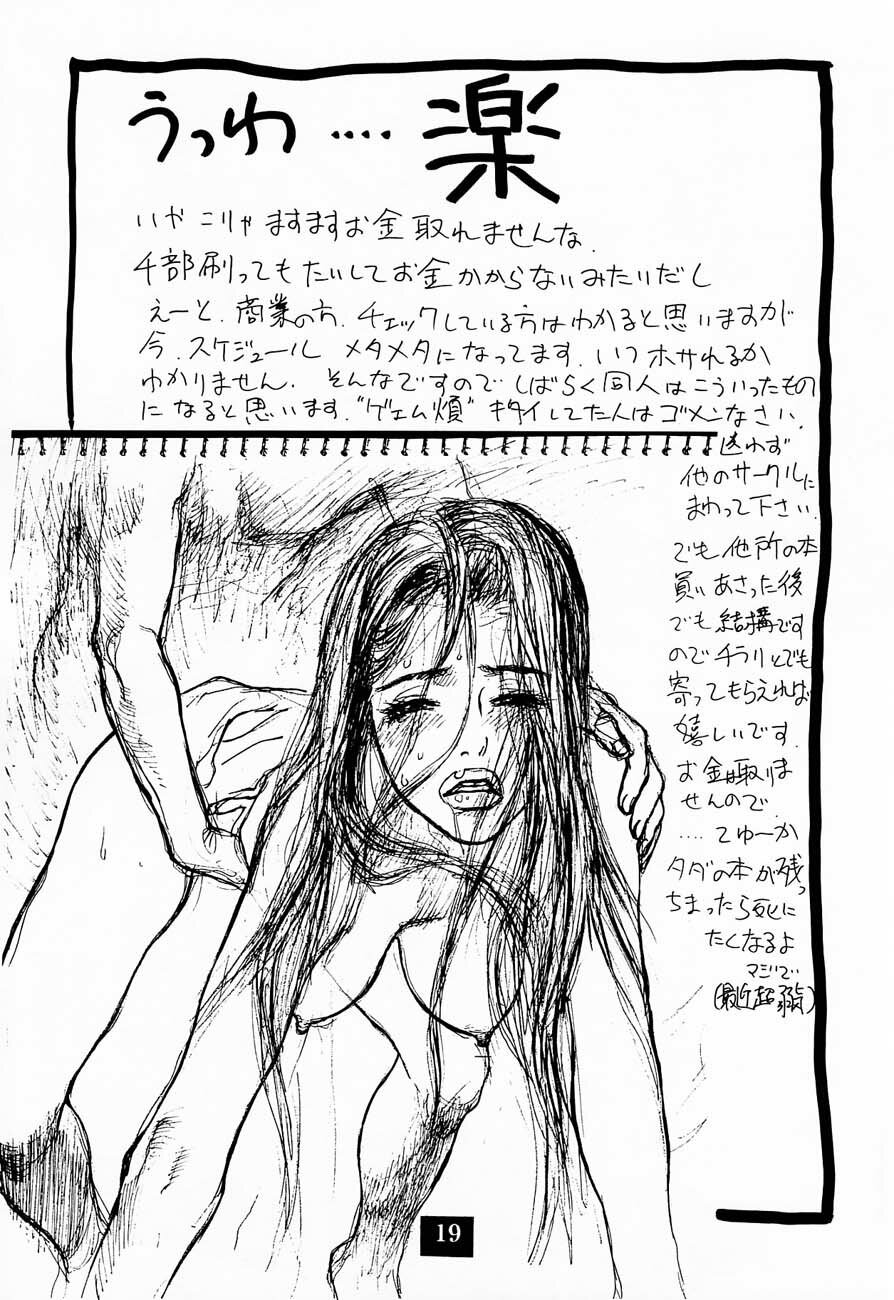 うっわ‥‥楽
いや こりゃ ますますお金取れませんな.
千部刷ってもたいしてお金かからないみたいだし
えーと. 商業の方. チェックしている方はわかると思いますが
今. スケジュール メタメタになってます. いつホサれるか
わかりません. そんなですので しばらく同人はこういったもの
になると思います. "ゲェム煩" キタイしてた人はゴメンなさい.
迷わず
他のサークルに
まわって下さい.
でも他所の本
買いあさった後
でも結構です
のでチラリとでも
寄ってもらえれば
嬉しいです.
お金は取りま
せんので.
‥‥てゆーか
タダの本が残っ
ちまったら死に
たくなるよ
マジで
(最近超弱)
19